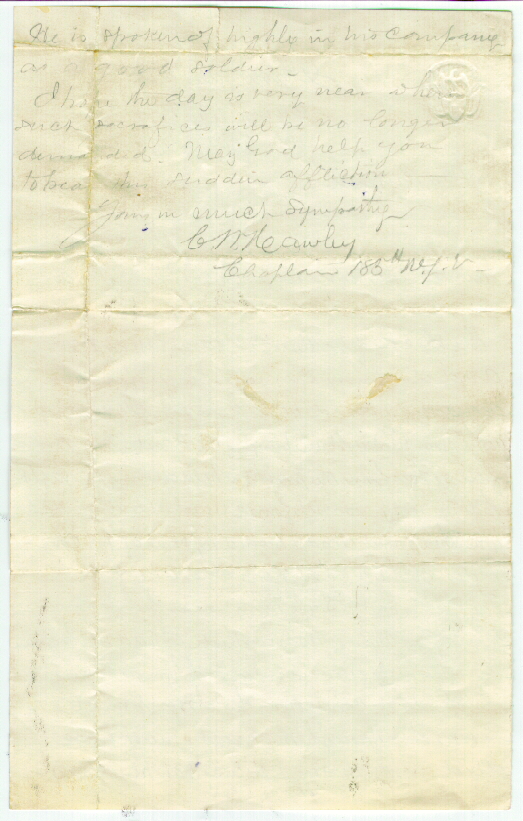 He is spoken of highly in his company
as a good soldier.
I hope the day is very near when
such sacrafices will be no longer
demanded. May God help you
to bear this sudden affliction
Yours in much sympathy
C W Hawley
Chaplain 185th N.Y.V.